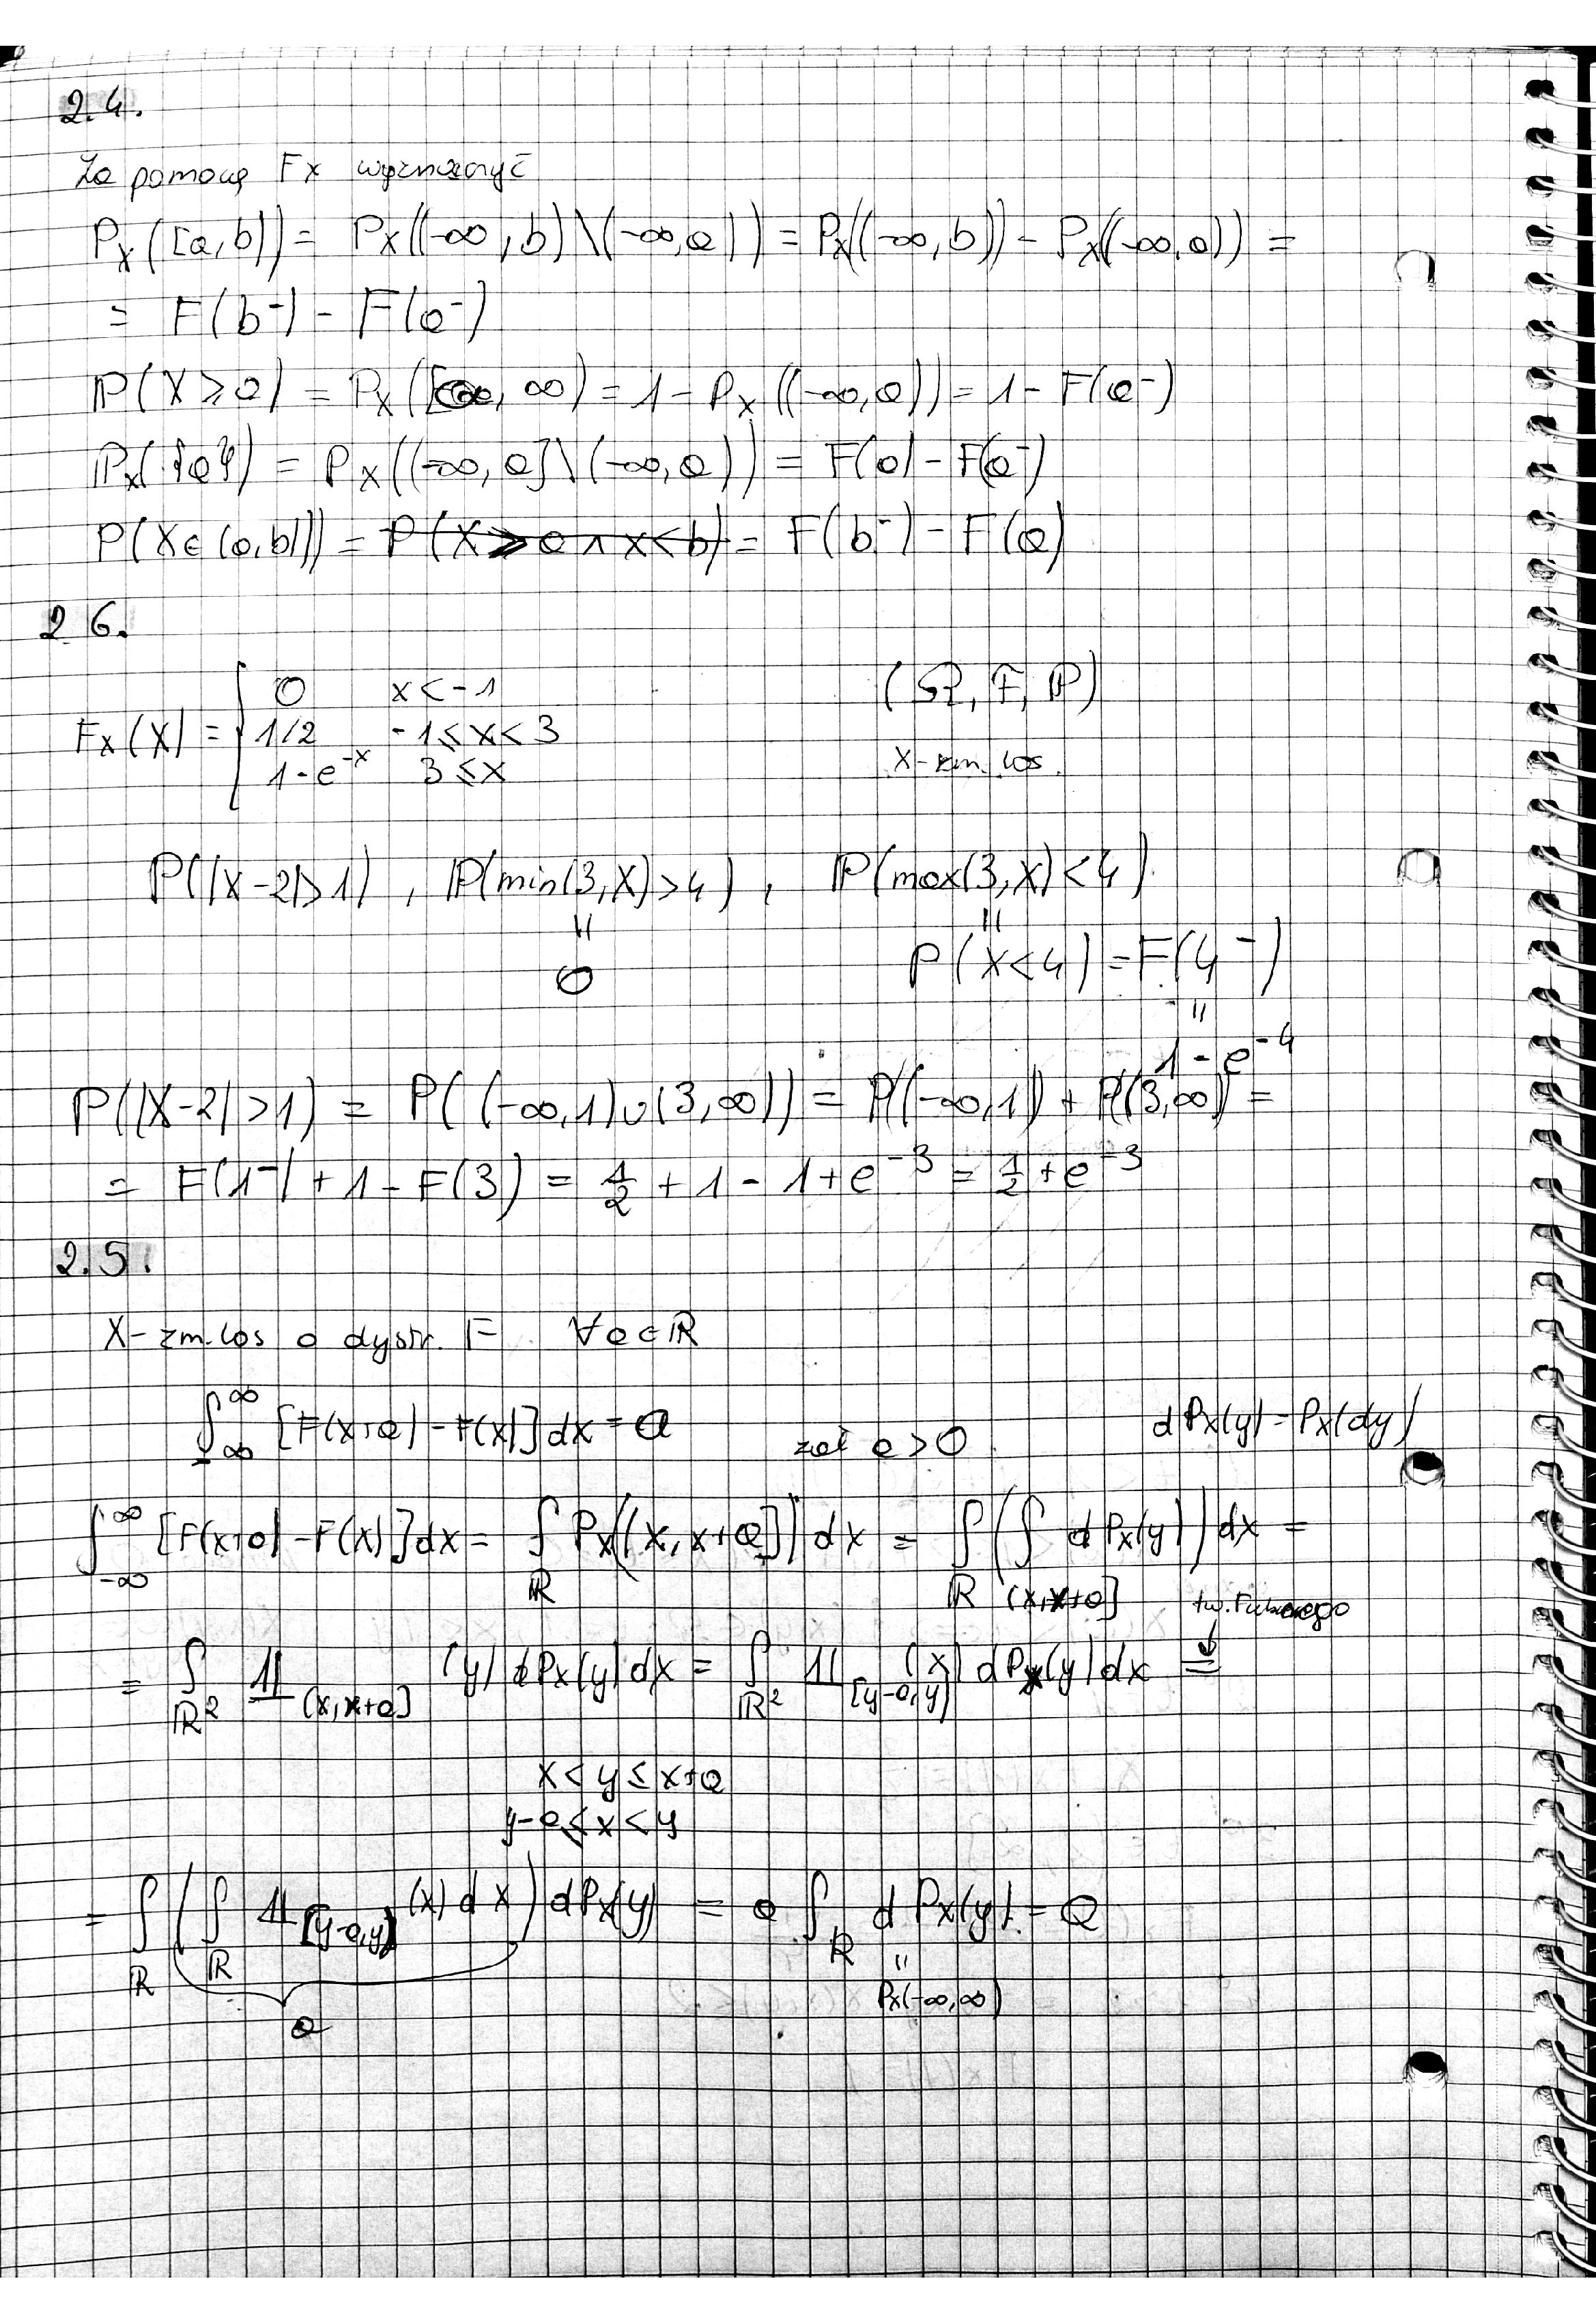 2.4.
Za pomocą Fx wyznaczyć
Px([a,b)) = Px((-∞,b)\(-∞,a)) = Px((-∞,b)) - Px((-∞,a)) =
= F(b⁻) - F(a⁻)
P(X≥a) = Px([a,∞) = 1 - Px((-∞,a)) = 1 - F(a⁻)
Px({a}) = Px((-∞,a]\(-∞,a)) = F(a) - F(a⁻)
P(X∈(a,b))) = P(X≥a ∧ X<b) = F(b⁻) - F(a)
2.6.
Fx(x) = { 0 x<-1 (Ω, F, P)
1/2 -1≤x<3
1-e^-x 3≤x X-zm. los.
P(|X-2|>1), P(min(3,X)>4), P(max(3,X)<4)
= =
0 P(X<4) = F(4⁻)
=
1-e^-4
P(|X-2|>1) = P((-∞,1)∪(3,∞)) = P((-∞,1)) + P((3,∞)) =
= F(1⁻) + 1 - F(3) = 1/2 + 1 - 1 + e^-3 = 1/2 + e^-3
2.5.
X-zm. los o dystr. F ∀a∈ℝ
∫_-∞^∞ [F(x+a) - F(x)]dx = a zał a>0 dPx(y) = Px(dy)
∫_-∞^∞ [F(x+a) - F(x)]dx = ∫_ℝ Px((x,x+a]) dx = ∫_ℝ (∫_(x,x+a] dPx(y)) dx =
tw. Fubiniego
= ∫_ℝ² 𝟙_(x,x+a] (y) dPx(y) dx = ∫_ℝ² 𝟙_[y-a,y) (x) dPx(y) dx =
x<y≤x+a
y-a≤x<y
= ∫_ℝ (∫_ℝ 𝟙_[y-a,y) (x) dx) dPx(y) = a ∫_ℝ dPx(y) = a
=
Px(-∞,∞)
a